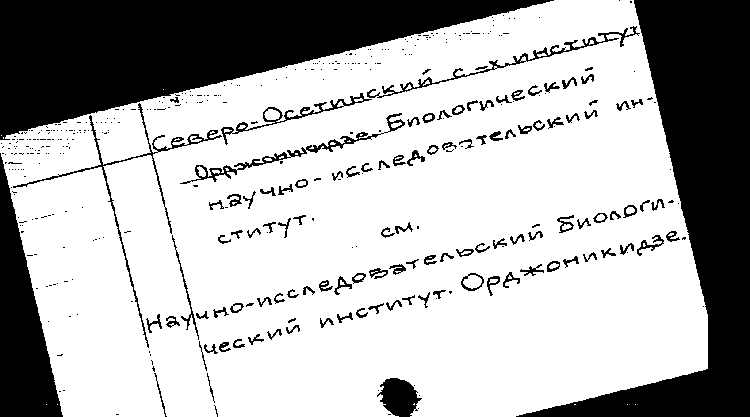 Северо-Осетинский с.-х. институт
Орджоникидзе. Биологический
научно-исследовательский ин-
ститут.
см.
Научно-исследовательский биологи-
ческий институт. Орджоникидзе.